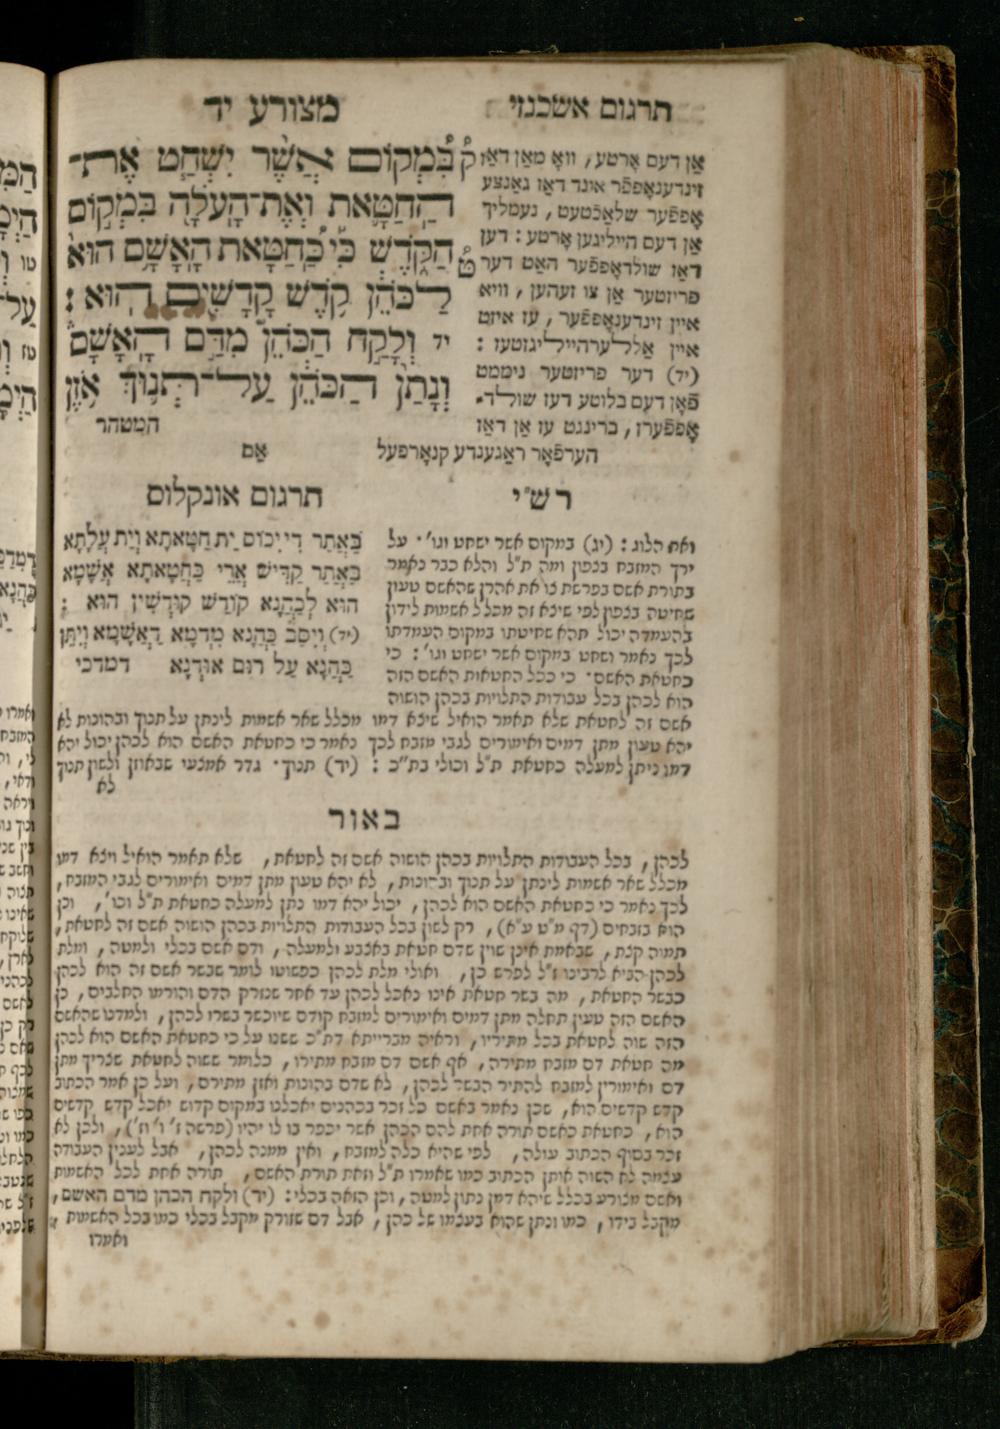 מצורע יד
תרגום אשכנזי
בַּמְּקוֹם אֲשֶׁר יִשְׁחַט אֶת־
הַחַטָּאת וְאֶת־הָעֹלָה בִּמְקוֹם
הַקֹּדֶשׁ כִּי כַּחַטָּאת הָאָשָׁם הוּא
לַכֹּהֵן קֹדֶשׁ קָדָשִׁים הוּא :
יד וְלָקַח הַכֹּהֵן מִדַּם הָאָשָׁם
וְנָתַן הַכֹּהֵן עַל־תְּנוּךְ אֹזֶן
המטהר
אן דעם ארטע, וואָ מאַן דאז
זינדענאָפּפֿר אונד דאַז גאַנצע
אָפּפֿער שלאַכֿטעט, נעמליך
אָן דעם הייליגען אָרטע : דען
דאז שולדאָפּפֿער האט דער
פריזטער אַן צו זעהען, וויא
איין זינדענאָפּפֿער, עז איזט
איין אַללערהייליגזטעז :
(יד) דער פריזטער נימט
פֿאָן דעם בלוטע דעז שולד־
אָפּפֿערז, ברינגט עז אַן דאז
הערפֿאָר ראַגענדע קנאָרפעל
אַם
תרגום אונקלוס
בְּאֲתַר דִּי יִכּוֹס יַת חַטָּאתָא וְיַת עֲלָתָא
בַּאֲתַר קַדִּישׁ אֲרֵי כְּחַטָּאתָא אֲשָׁמָא
הוּא לְכַהֲנָא קוֹדֶשׁ קוּדְשִׁין הוּא :
(יד) וְיִסַּב כַּהֲנָא מִדְּמָא דַאֲשָׁמָא וְיִתֵּן
כַּהֲנָא עַל רוּם אוּדְנָא דמדכי
רש"י
ואת הלוג : (יג) במקום אשר ישחט וגו'. על
ירך המזבח בצפון ומה ת"ל והלא כבר נאמר
בתורת אשם בפרשת צו את אהרן שהאשם טעון
שחיטה בצפון לפי שיצא זה מכלל אשמות לידון
בהעמדה יכול תהא שחיטתו במקום העמדתו
לכך נאמר ושחט במקום אשר ישחט וגו' : כי
כחטאת האשם. כי ככל החטאות האשם הזה
הוא לכהן בכל עבודות התלויות בכהן הושוה
אשם זה לחטאת שלא תאמר הואיל ויצא דמו מכלל שאר אשמות לינתן על תנוך ובהונות לא
יהא טעון מתן דמים ואימורים לגבי מזבח לכך נאמר כי כחטאת האשם הוא לכהן יכול יהא
דמו ניתן למעלה כחטאת ת"ל וכולי בת"כ : (יד) תנוך. גדר אמצעי שבאוזן ולשון תנוך
לא
באור
לכהן, בכל העבודות התלויות בכהן הושוה אשם זה לחטאת, שלא תאמר הואיל ויצא דמו
מכלל שאר אשמות לינתן על תנוך ובהונות, לא יהא טעון מתן דמים ואימורים לגבי המזבח,
לכך נאמר כי כחטאת האשם הוא לכהן, יכול יהא דמו נתן למעלה כחטאת ת"ל וכו', וכן
הוא בזבחים (דף מ"ט ע"א), רק לשון בכל העבודות התלויות בכהן הושוה אשם זה לחטאת,
תמוה קצת, שבאמת אינן שוין שדם חטאת באצבע ולמעלה, ודם אשם בכלי ולמטה, ומלת
לכהן הביא לרבינו ז"ל לפרש כן, ואולי מלת לכהן כפשוטו לומר שבשר אשם זה הוא לכהן
כבשר החטאת, מה בשר חטאת אינו נאכל לכהן עד אחר שנזרק הדם והורמו החלבים, כן
האשם הזה טעין תחלה מתן דמים ואימורים למזבח קודם שיוכשר בשרו לכהן, ולמדנו שהאשם
הזה שוה לחטאת בכל מתיריו, וראיה מברייתא דת"כ ששנו על כי כחטאת האשם הוא לכהן
מה חטאת דם מזבח מתירה, אף אשם דם מזבח מתירו, כלומר ששוה לחטאת שצריך מתן
דם ואימורין למזבח להתיר הבשר לכהן, לא שדם בהונות ואזן מתירם, ועל כן אמר הכתוב
קדש קדשים הוא, שכן נאמר באשם כל זכר בכהנים יאכלנו במקום קדוש יאכל קדש קדשים
הוא, כחטאת כאשם תורה אחת להם הכהן אשר יכפר בו לו יהיו (פרשה ז' ו' וז'), ולכן לא
זכר בסוף הכתוב עולה, לפי שהיא כלה למזבח, ואין ממנה לכהן, אבל לענין העבודה
עצמה לא השוה אותן הכתוב כמו שאמרו ת"ל וזאת תורת האשם, תורה אחת לכל האשמות
ואשם מצורע בכלל שיהא דמן נתון למטה, וכן הזאה בכלי : (יד) ולקח הכהן מדם האשם,
מקבל בידו, כמו ונתן שהוא בעצמו של כהן, אבל דם שזורק מקבל בכלי כמו בכל האשמות
ואמרו